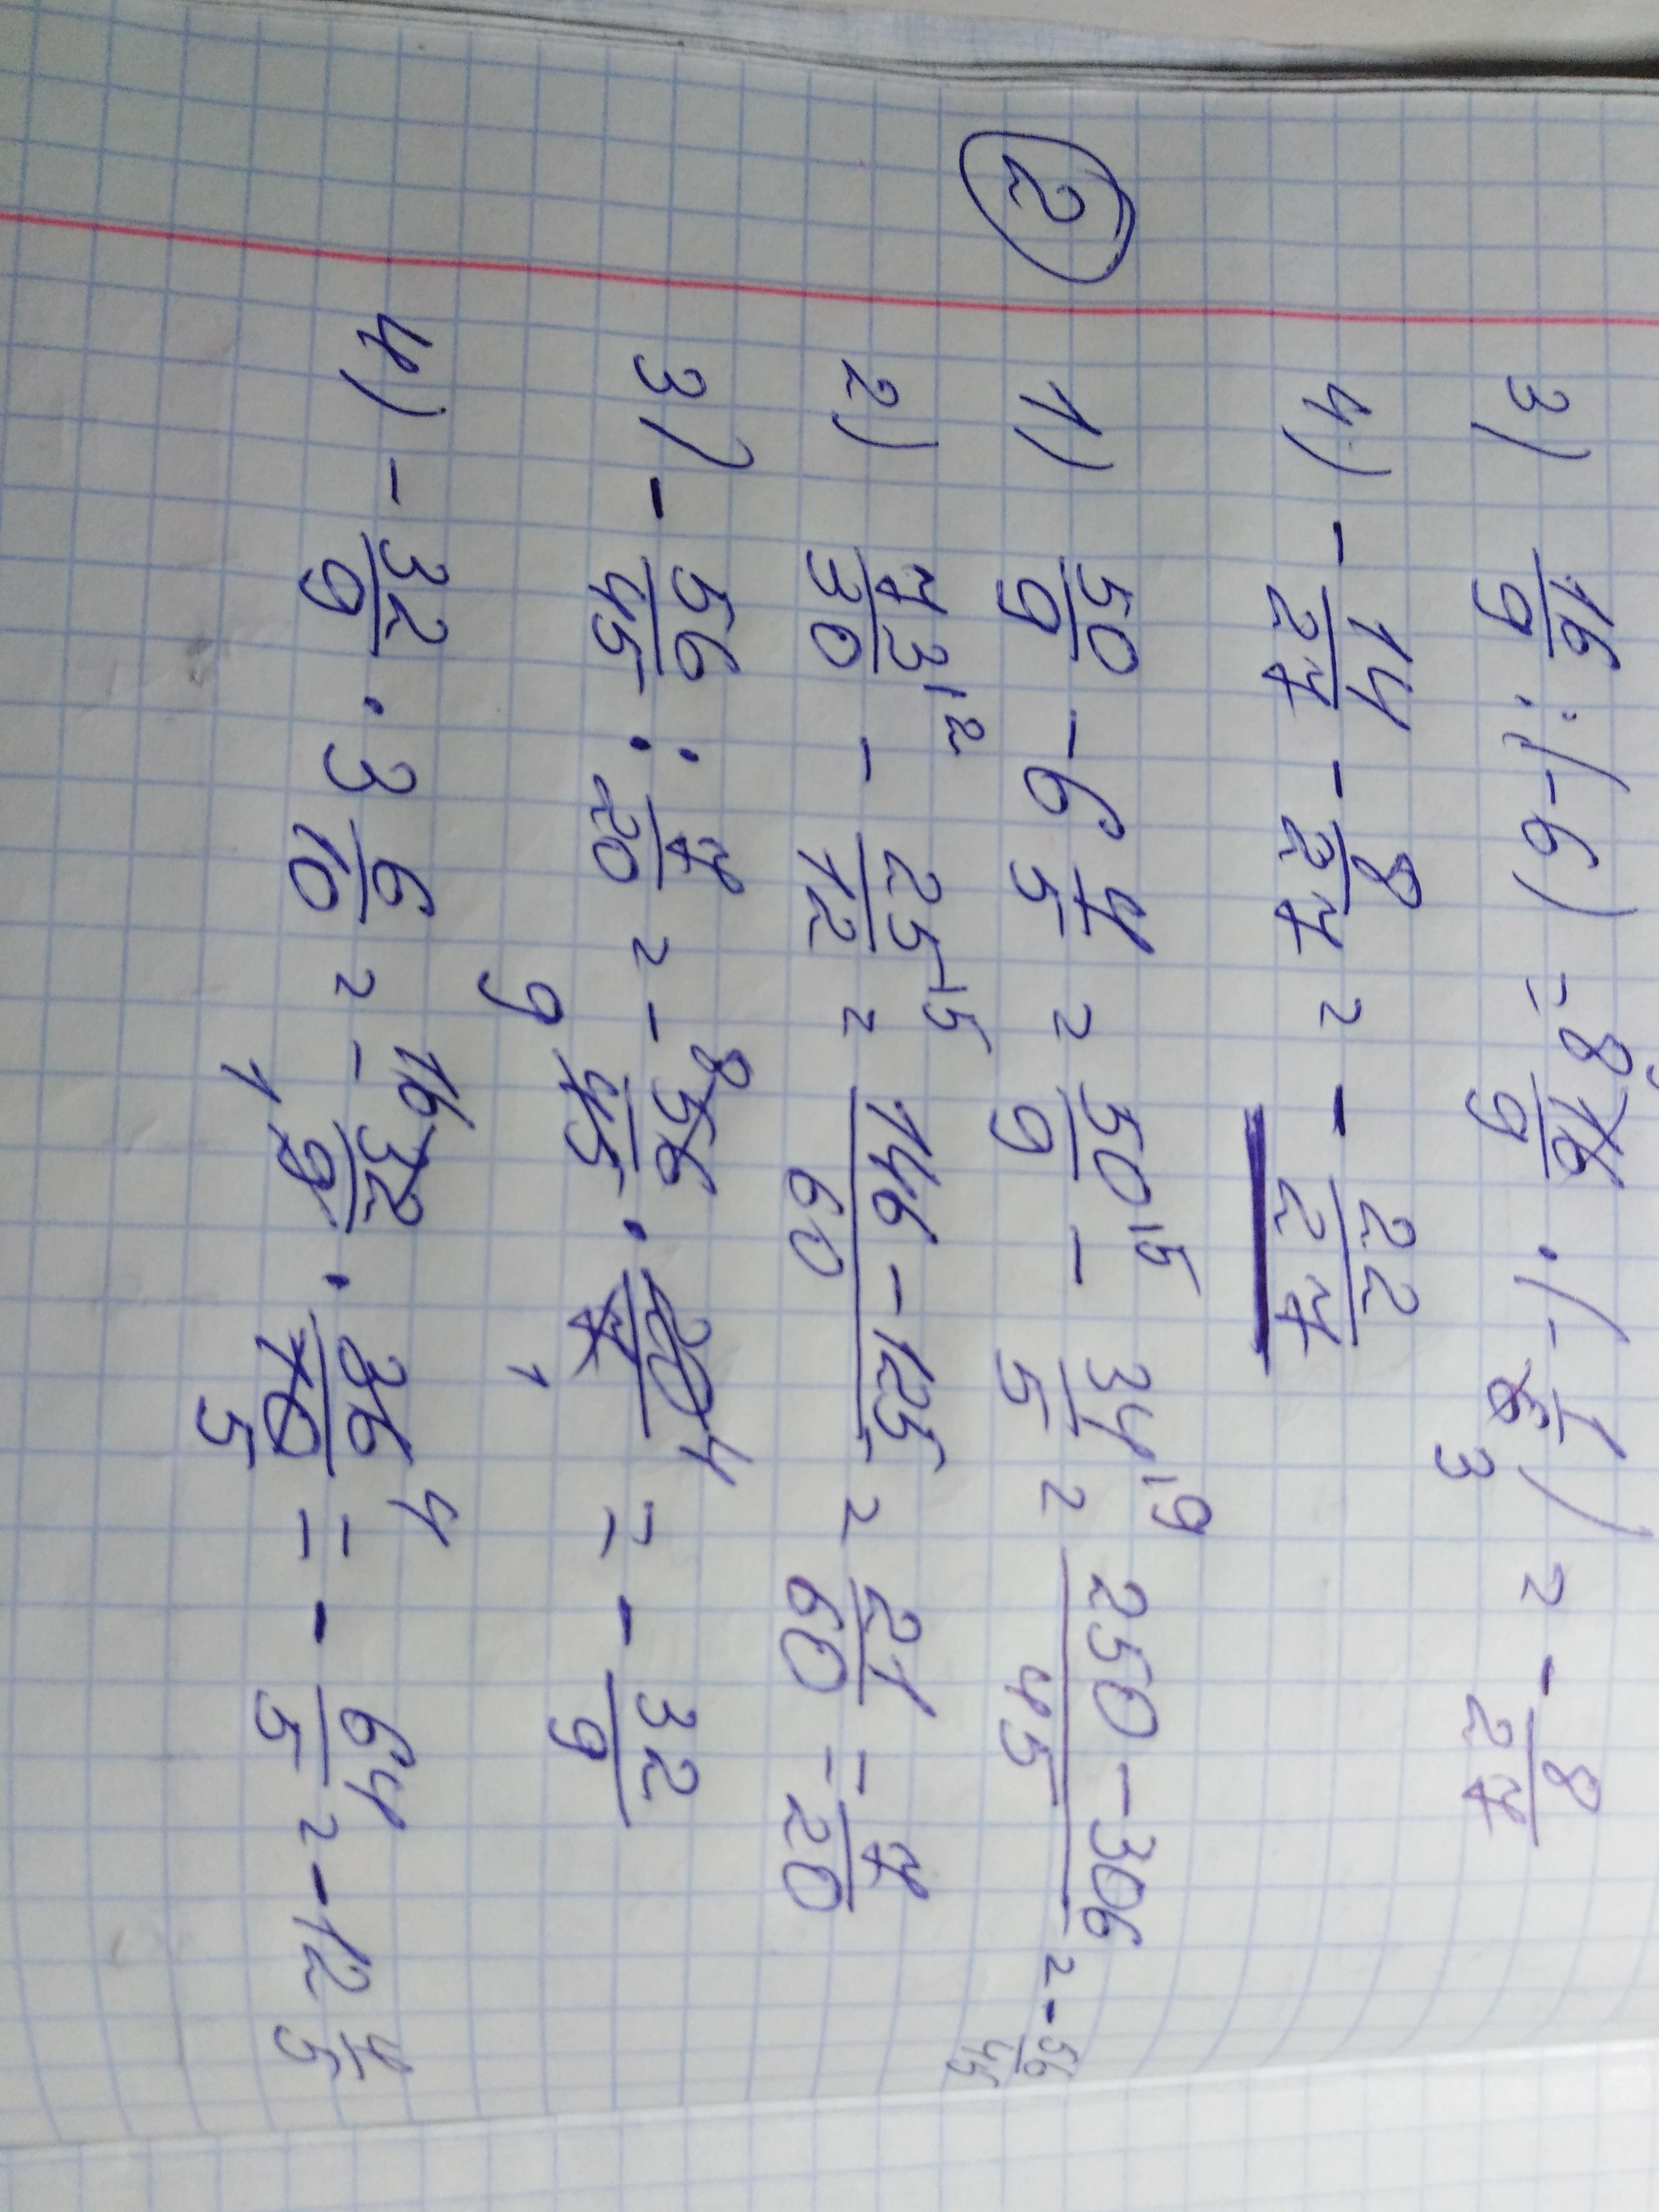 3) 16/9 : (-6) = 8 16/9 · (-1/6 3) = -8/27
4) -14/27 - 8/27 = -22/27
2
1) 50/9 - 6 4/5 = 50/9 |5 - 34/5 |9 = 250-306/45 = -56/45
2) 73/30 |2 - 25/12 |5 = 146-125/60 = 21/60 = 7/20
3) -56/45 : 7/20 = - 8 56/45 9 · 20/7 4 1 = -32/9
4) -32/9 · 3 6/10 = - 16 32/9 1 · 36/10 4 5 = -64/5 = -12 4/5